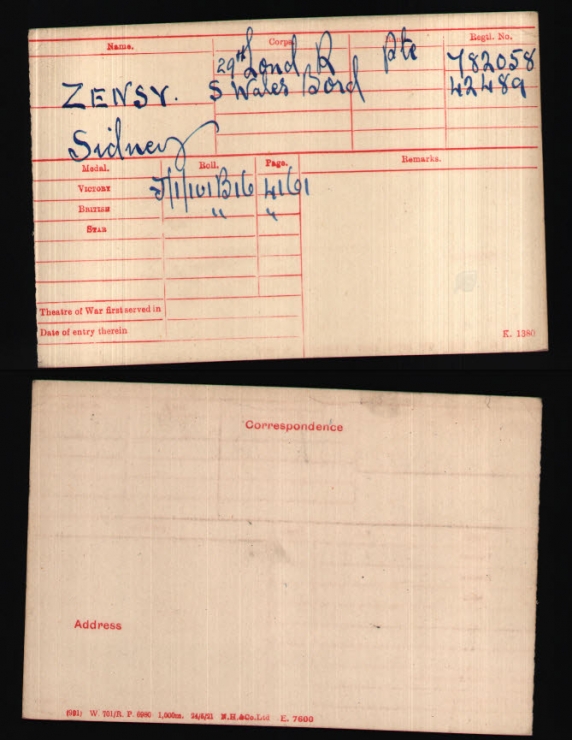 Name. Corps. Regtl. No.
29th Lond R Pte 782058
ZENSY. S Wales Bord 42489
Sidney
Medal. Roll. Page. Remarks.
VICTORY J/1/101B16 4161
BRITISH " "
STAR
Theatre of War first served in
Date of entry therein
K. 1380
Correspondence
Address
W. 701/R. P. 8980 1,000m. 24/5/21 N.H.&Co.Ltd E. 7600